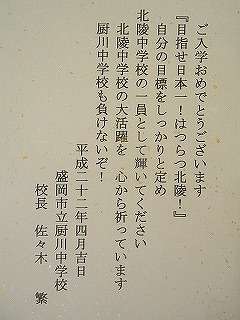 ご入学おめでとうございます
『目指せ日本一!はつらつ北陵!』
自分の目標をしっかりと定め
北陵中学校の一員として輝いてください
北陵中学校の大活躍を　心から祈っています
厨川中学校も負けないぞ!
平成二十二年四月吉日
盛岡市立厨川中学校
校長　佐々木　繁